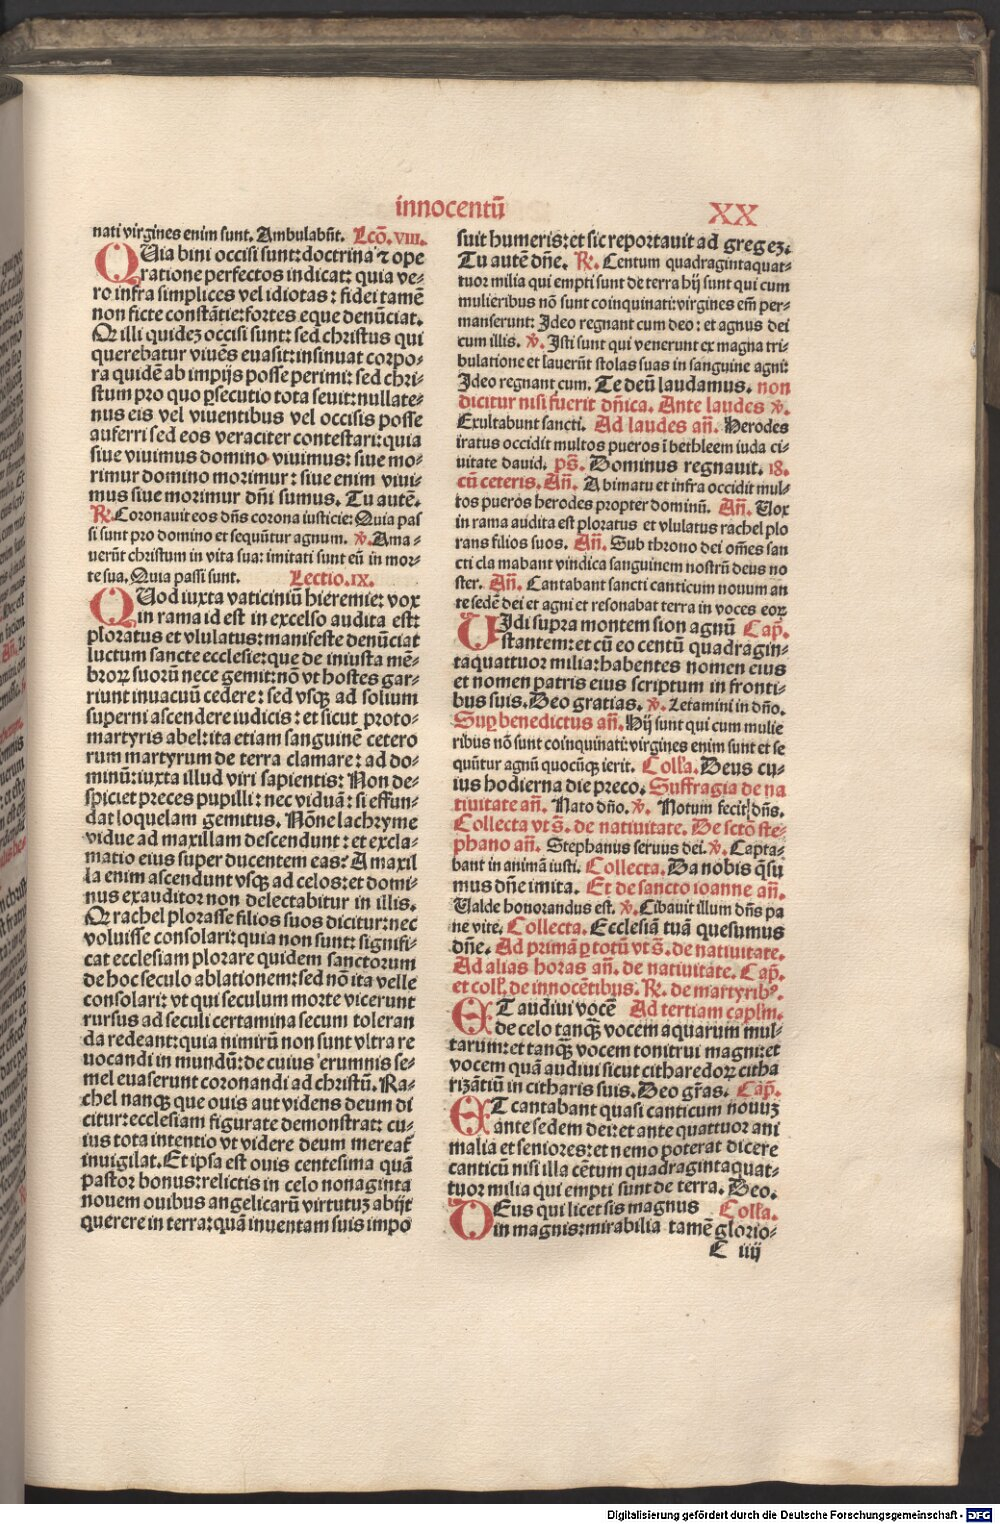 innocentū
XX
nati virgines enim sunt. Ambulabūt. Lcō. VIII.
QUia bini occisi sunt: doctrina ⁊ ope
ratione perfectos indicat: quia ve-
ro infra simplices vel idiotas: fidei tamē
non ficte constātie: fortes eque denūciat.
Qr illi quidez occisi sunt: sed christus qui
querebatur viuēs euasit: insinuat corpo-
ra quidē ab impijs posse perimi: sed chri-
stum pro quo ꝑsecutio tota seuit: nullate-
nus eis vel viuentibus vel occisis posse
auferri sed eos veraciter contestari: quia
siue viuimus domino viuimus: siue mo-
rimur domino morimur: siue enim viui-
mus siue morimur dn̄i sumus. Tu autē.
℟. Coronauit eos dn̄s corona iusticie: Quia pas
si sunt pro domino et sequūtur agnum. ℣. Ama-
uerūt christum in vita sua: imitati sunt eū in mor-
te sua. Quia passi sunt. Lectio. IX.
QUod iuxta vaticiniū hieremie: vox
in rama id est in excelso audita est:
ploratus et vlulatus: manifeste denūciat
luctum sancte ecclesie: que de iniusta mē-
broꝝ suorū nece gemit: nō vt hostes gar-
riunt inuacuū cedere: sed vsqꝫ ad solium
superni ascendere iudicis: et sicut proto-
martyris abel: ita etiam sanguinē cetero
rum martyrum de terra clamare: ad do-
minū: iuxta illud viri sapientis: Non de-
spiciet preces pupilli: nec viduā: si effun-
dat loquelam gemitus. Nōne lachryme
vidue ad maxillam descendunt: et excla-
matio eius super ducentem eas? A maxil
la enim ascendunt vsqꝫ ad celos: et domi-
nus exauditor non delectabitur in illis.
Qr rachel plorasse filios suos dicitur: nec
voluisse consolari: quia non sunt: signifi-
cat ecclesiam plorare quidem sanctorum
de hoc seculo ablationem: sed nō ita velle
consolari: vt qui seculum morte vicerunt
rursus ad seculi certamina secum toleran
da redeant: quia nimirū non sunt vltra re
uocandi in mundū: de cuius erumnis se-
mel euaserunt coronandi ad christū. Ra-
chel nanqꝫ que ouis aut videns deum di
citur: ecclesiam figurate demonstrat: cu-
ius tota intentio vt videre deum mereat᷑
inuigilat. Et ipsa est ouis centesima quā
pastor bonus: relictis in celo nonaginta
nouem ouibus angelicarū virtutuz abijt
querere in terra: quā inuentam suis impo
suit humeris: et sic reportauit ad gregez.
Tu autē dn̄e. ℟. Centum quadragintaquat-
tuor milia qui empti sunt de terra hij sunt qui cum
mulieribus nō sunt coinquinati: virgines em̄ per-
manserunt: Ideo regnant cum deo: et agnus dei
cum illis. ℣. Isti sunt qui venerunt ex magna tri-
bulatione et lauerūt stolas suas in sanguine agni:
Ideo regnant cum. Te deū laudamus. non
dicitur nisi fuerit dn̄ica. Ante laudes ℣.
Exultabunt sancti. Ad laudes an̄. Herodes
iratus occidit multos pueros ī bethleem iuda ci-
uitate dauid. ps̄. Dominus regnauit. 18.
cū ceteris. An̄. A bimatu et infra occidit mul-
tos pueros herodes propter dominū. An̄. Vox
in rama audita est ploratus et vlulatus rachel plo
rans filios suos. An̄. Sub throno dei om̄es san
cti clamabant vindica sanguinem nostrū deus no
ster. An̄. Cantabant sancti canticum nouum an
te sedē dei et agni et resonabat terra in voces eoꝝ
UIdi supra montem sion agnū Cap̄.
stantem: et cū eo centū quadragin-
taquattuor milia: habentes nomen eius
et nomen patris eius scriptum in fronti-
bus suis. Deo gratias. ℣. Letamini in dn̄o.
Suꝑ benedictus an̄. Hij sunt qui cum mulie
ribus nō sunt coinquinati: virgines enim sunt et se
quūtur agnū quocūqꝫ ierit. Coll'a. Deus cu-
ius hodierna die preco. Suffragia de na
tiuitate an̄. Nato dn̄o. ℣. Notum fecit dn̄s.
Collecta vt s̄. de natiuitate. De sctō ste-
phano an̄. Stephanus seruus dei. ℣. Capta-
bant in animā iusti. Collecta. Da nobis q̄su
mus dn̄e imita. Et de sancto ioanne an̄.
Valde honorandus est. ℣. Cibauit illum dn̄s pa
ne vite. Collecta. Ecclesiā tuā quesumus
dn̄e. Ad primā ꝑ totū vt s̄. de natiuitate.
Ad alias horas an̄. de natiuitate. Cap̄.
et coll'. de innocētibus. ℟. de martyribꝰ.
ET audiui vocē Ad tertiam caplm̄.
de celo tanqꝫ vocem aquarum mul-
tarum: et tanqꝫ vocem tonitrui magni: et
vocem quā audiui sicut citharedoꝝ citha
rizātiū in citharis suis. Deo gr̄as. Cap̄.
ET cantabant quasi canticum nouuz
ante sedem dei: et ante quattuor ani
malia et seniores: et nemo poterat dicere
canticū nisi illa cētum quadragintaquat-
tuor milia qui empti sunt de terra. Deo.
DEus qui licet sis magnus Coll'a.
in magnis: mirabilia tamē glorio-
C iiij
Digitalisierung gefördert durch die Deutsche Forschungsgemeinschaft - DFG